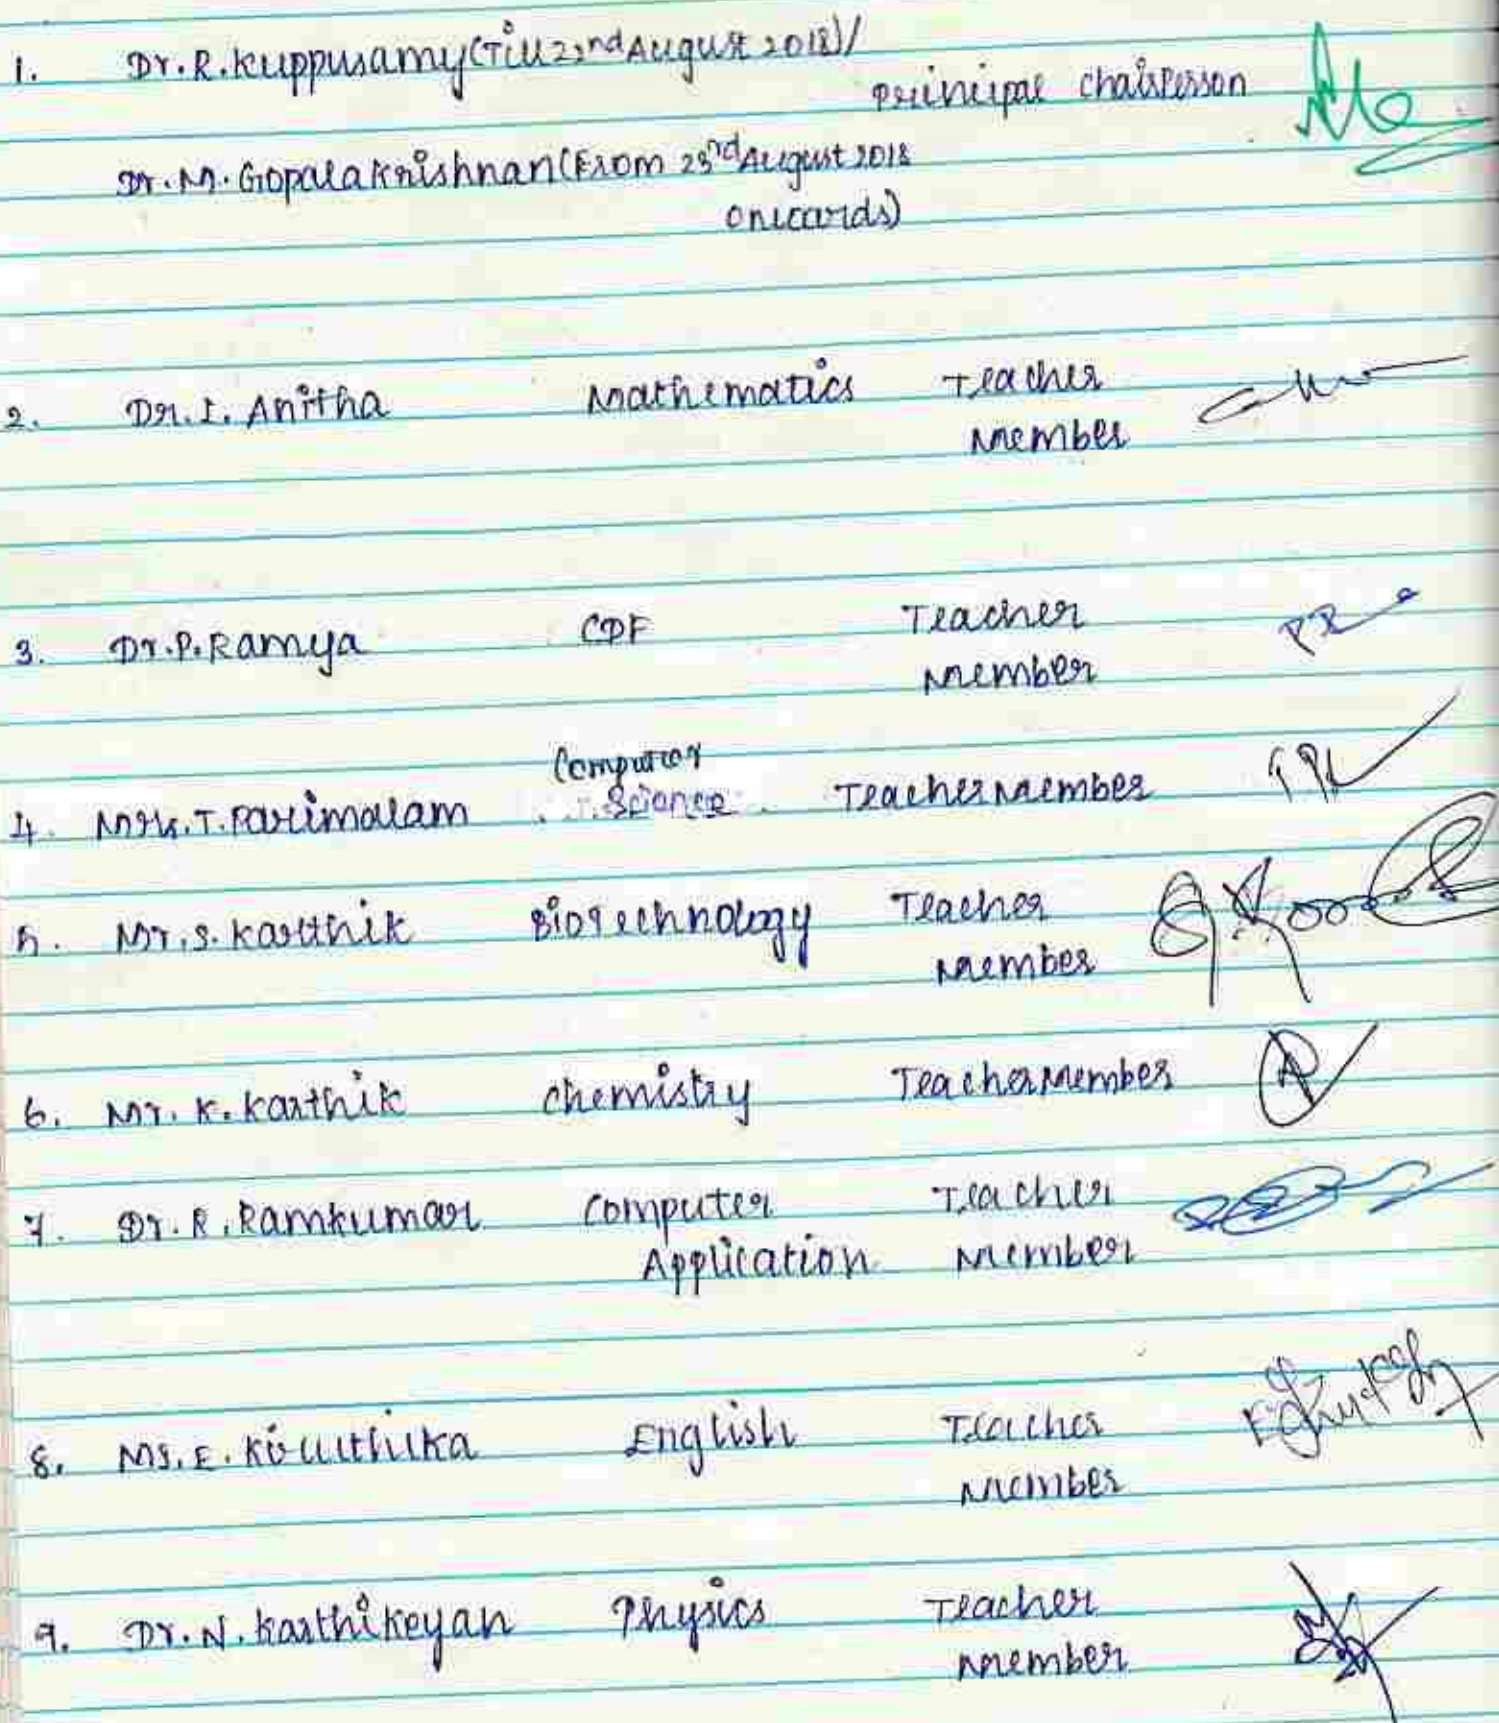 1. Dr. R. Kuppusamy (Till 22nd August 2018)/
Principal Chairperson
Dr. M. Gopalakrishnan (From 23rd August 2018
onwards)
2. Dr. I. Anitha Mathematics Teacher
Member
3. Dr. P. Ramya CDF Teacher
Member
Computer
4. Mrs. T. Parimalam Science Teacher Member
5. Mr. S. Karthik Biotechnology Teacher
Member
6. Mr. K. Karthik Chemistry Teacher Member
7. Dr. R. Ramkumar Computer Teacher
Application Member
8. Ms. E. English Teacher
Member
9. Dr. N. Karthikeyan Physics Teacher
Member